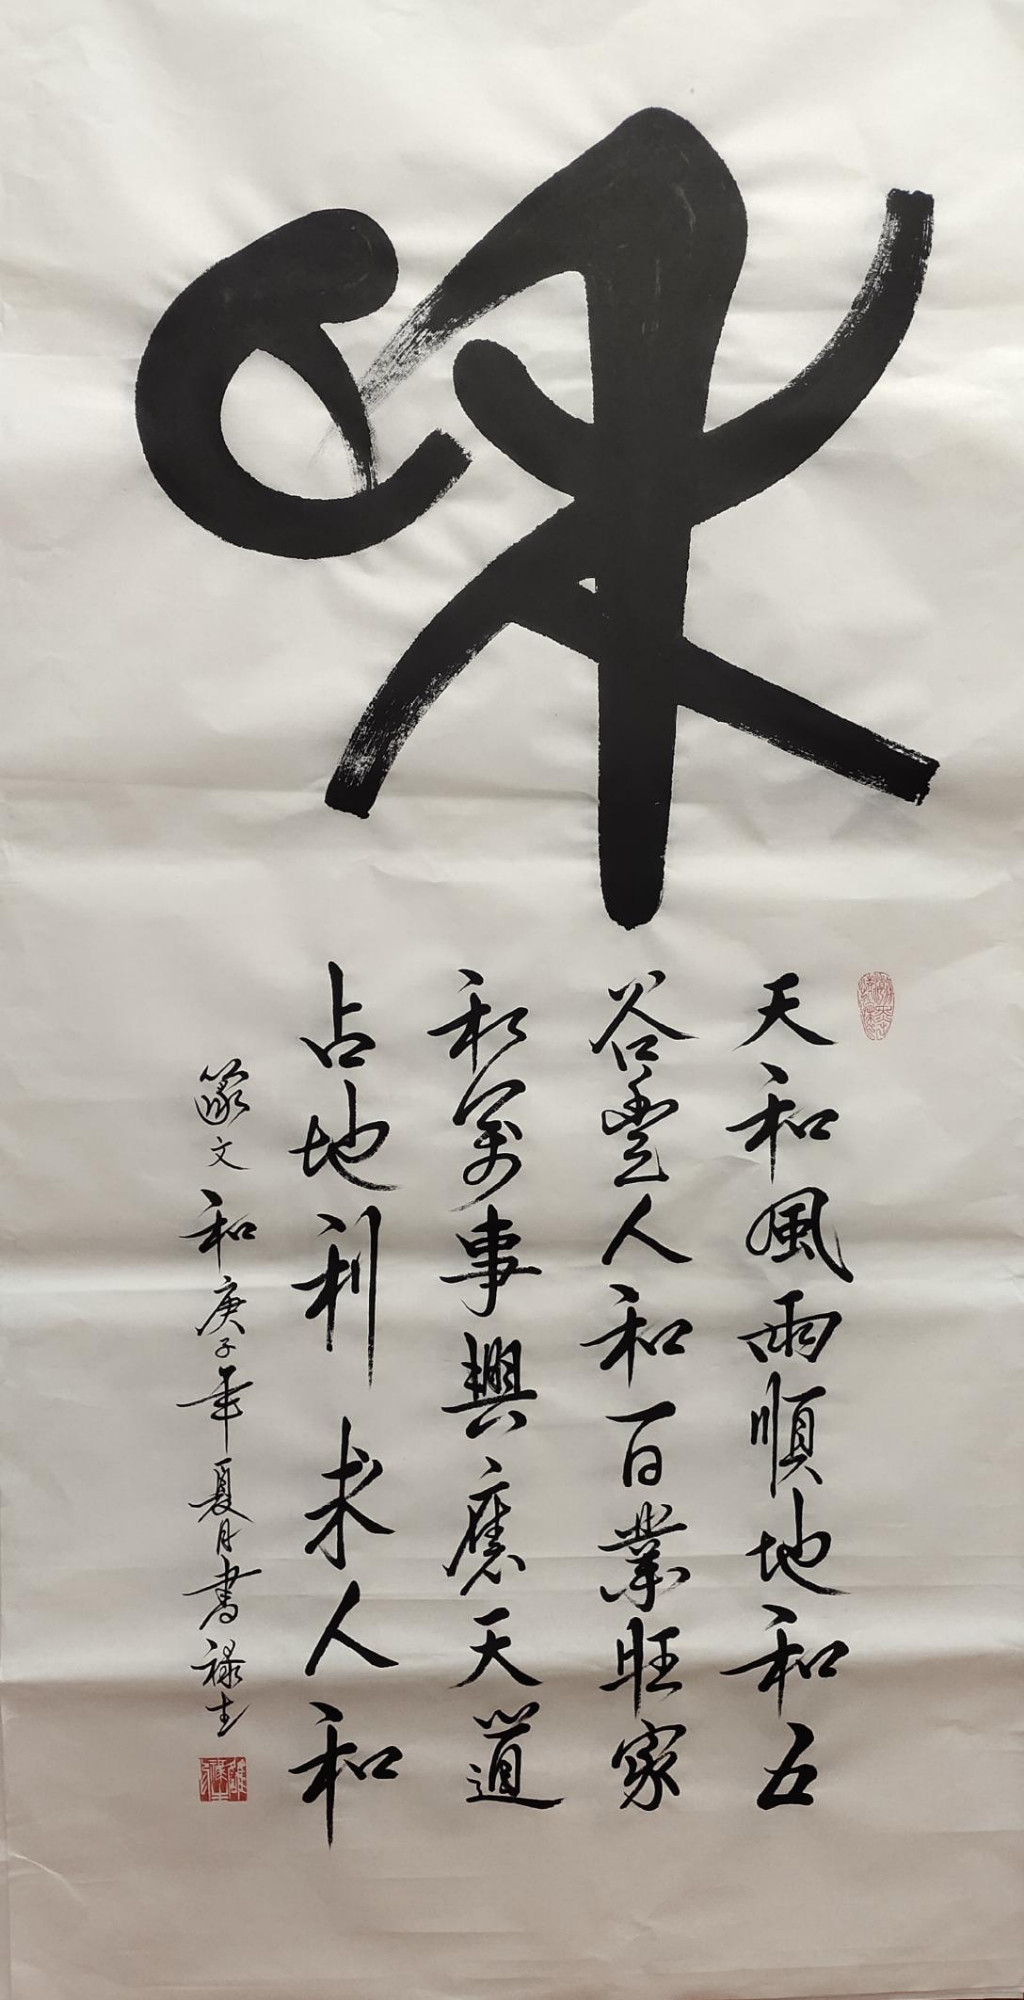 和
天和風雨順地和五
谷豐人和百業旺家
和家事興應天道
占地利求人和
篆文和庚子年夏月書禄生